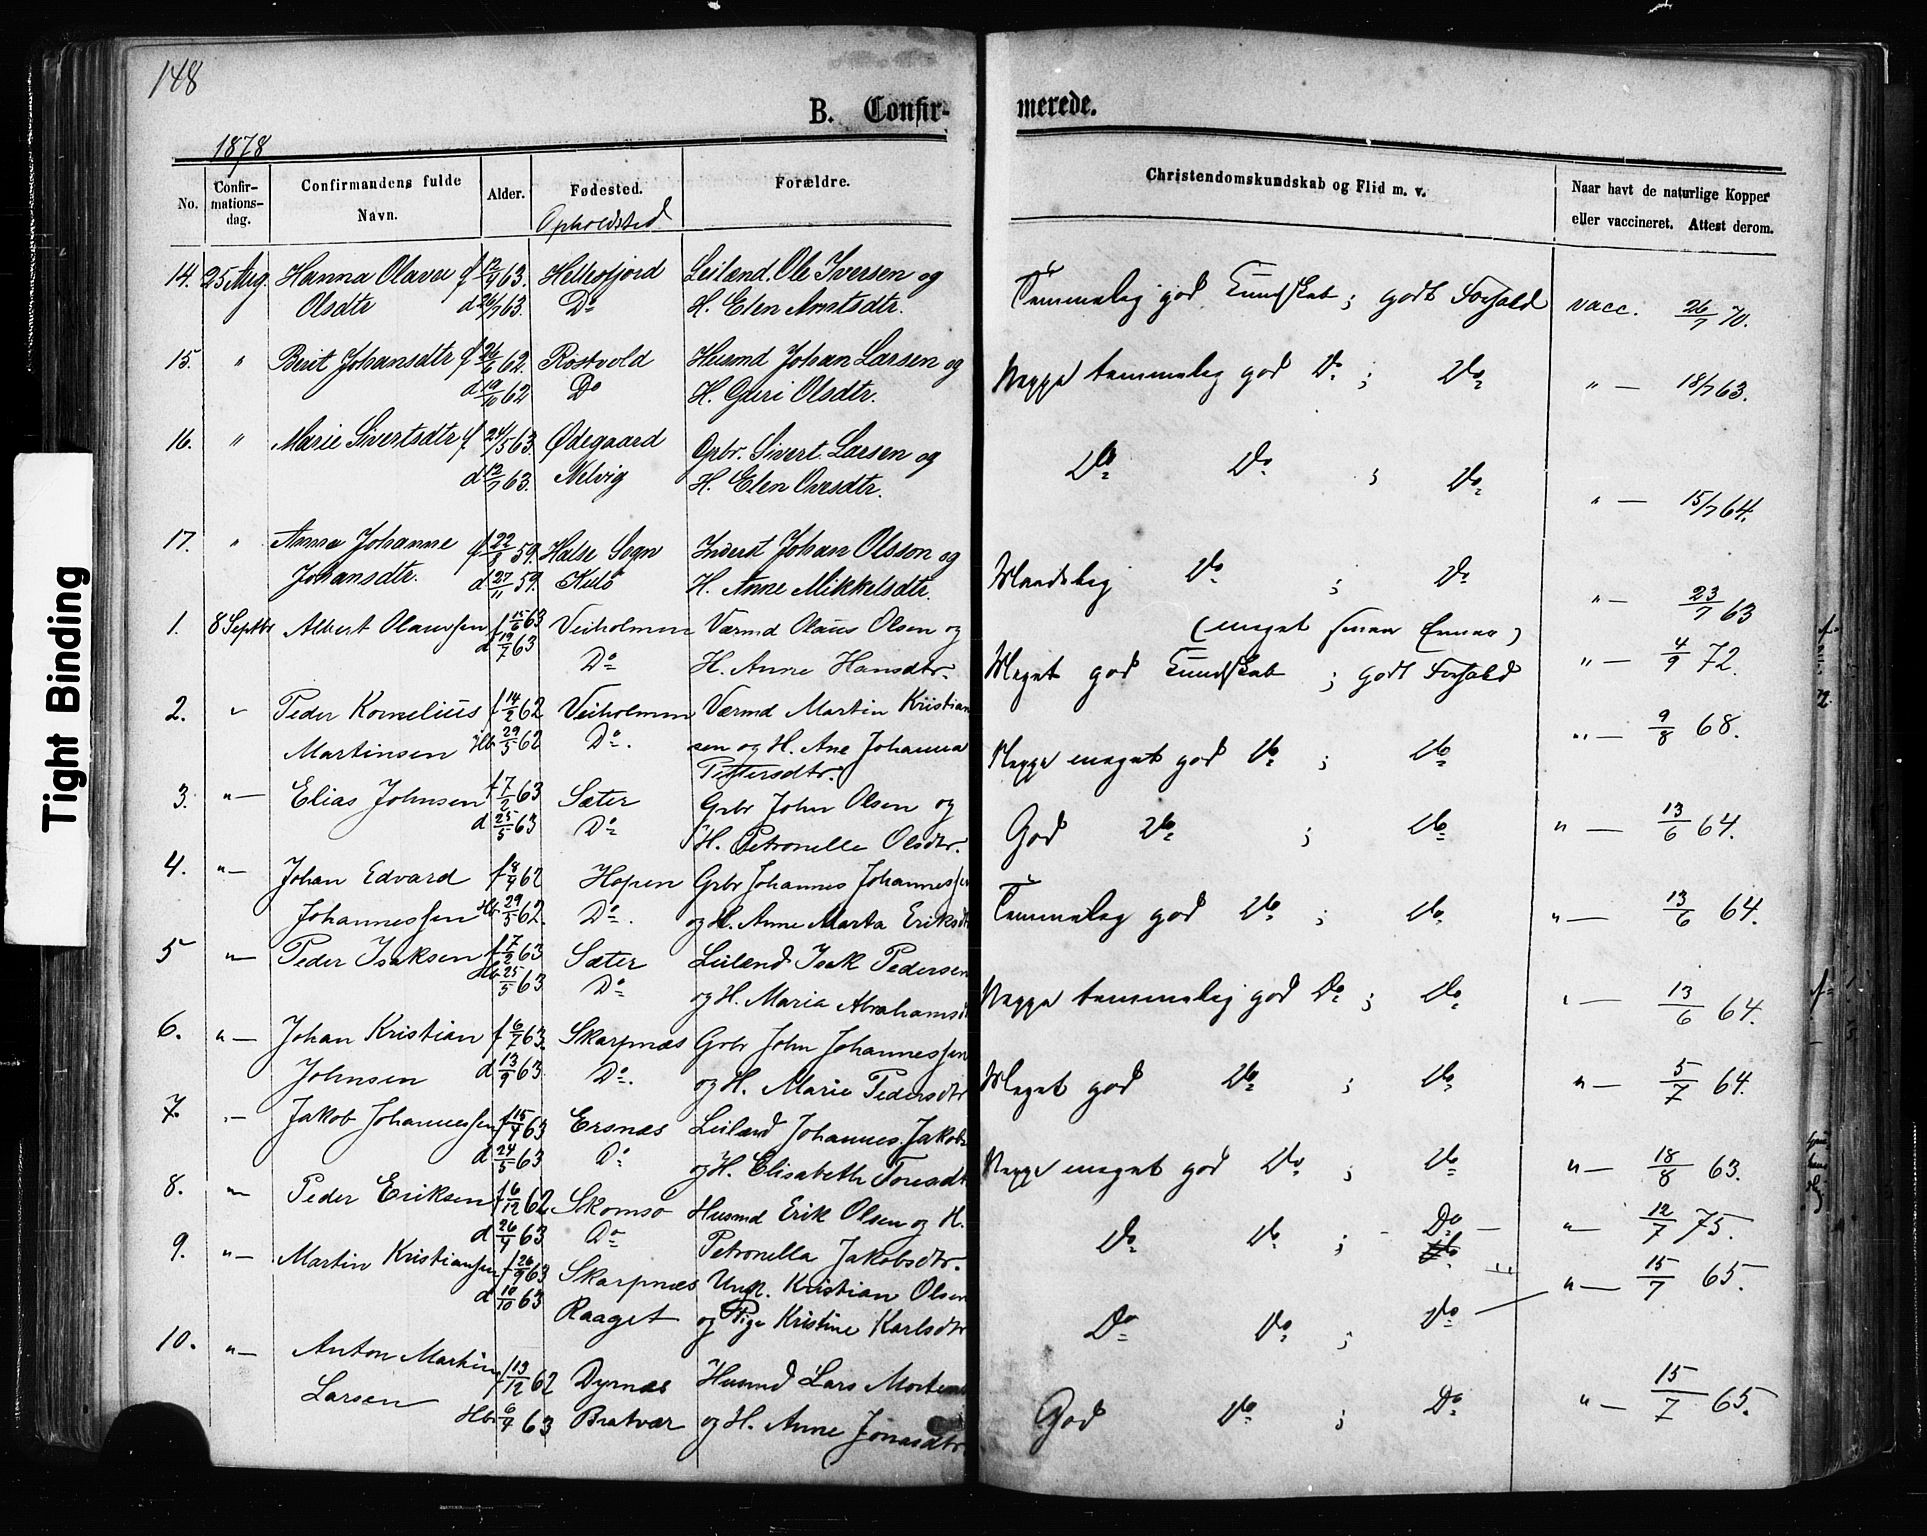 148
B. Confir- merede.
1878
No. Confir-mations-dag. Confirmandens fulde Navn. Alder. Fødested. Forældre. Christendomskundskab og Flid m. v. Naar havt de naturlige Kopper eller vaccineret. Attest derom.
Opholdsted
14. 25 Aug. Hanna Olava f 63. Leiland. Ole Iversen og Temmelig god Kundskab ; godt Forhold vacc. 26/7 70.
Olsdtr d 26/7 63. Do H. Elen Arntsdtr.
15. " Berit Johansdtr f 26/6 62. Rostvold Husmd Johan Larsen og Neppe temmelig god Do ; Do " — 18/7 63.
d 19/10 62 Do H. Guri Olsdtr.
16. " Marie Sivertsdtr f 24/5 63. Ødegaard Grbr. Sivert Larsen og Do Do ; Do " — 15/7 64.
d 12/7 63. Nelvig H. Elen Oresdtr.
17. " Anna Johanne f 22/8 59. Halse Sogn Inderst Johan Olsson og Maadelig Do ; Do " — 23/7 63
Johansdtr. d 27/11 59. H. Anne Mikkelsdtr.
(meget smaa Evner)
1. 8 Septbr Albert Olaussen f 15/6 63 Veiholmen Værmd Olaus Olsen og Meget god Kundskab ; godt Forhold " — 4/9 72.
d 19/7 63 Do H. Anne Hansdtr.
2. " Peder Kornelius f 14/2 62 Veiholmen Værmd Martin Kristian " — 9/8 68.
Martinsen Hb 29/5 62 Do. sen og H. Ane Johanna Neppe meget god Do ; Do
Pettersdtr.
3. " — Elias Johnsen f 7/2 63 Sæter Grbr John Olsen og God Do ; Do " — 13/6 64.
d 25/5 63 Do H. Petronelle Olsdtr.
4. " — Johan Edvard f 8/4 62 Hopen Grbr Johannes Johannessen Temmelig god Do ; Do " — 13/6 64.
Johannessen Hb 29/5 62. Do. og H. Anne Marta Eriksdt
5 " — Peder Isaksen f 7/2 63 Sæter Leilænd Isak Pedersen Neppe temmelig god Do ; Do " — 13/6 64.
Hb 25/5 63 Do og H. Maria Abrahamsd
6. " — Johan Kristian f 6/7 63. Skarpnæs Grbr John Johannessen Meget god Do ; Do " — 5/7 64.
Johnsen d 13/9 63 Do. og H. Marie Pedersdtr
7. " — Jakob Johannessen f 15/4 63 Ersnæs Leilænd Johannes Jakobs Neppe meget god Do ; Do " — 18/8 63.
d 24/5 63 Do og H. Elisabeth Toresdt
8. " — Peder Eriksen f 6/12 62 Skomsø Husmd Erik Olsen og H. Do Do ; Do — " — 12/7 75.
d 26/4 63 Do Petronella Jakobsdtr.
9. " — Martin Kristiansen f 26/9 63 Skarpnæs Ungk. Kristian Olsen Do Do ; Do — " — 15/7 65.
d 18/10 63 Raaget og Pige Kristine Karlsdtr
10. " — Anton Martin f 13/12 62 Dyrnæs Husmd Lars Mortens God Do ; Do " — 15/7 65.
Larsen Hb 6/4 63 Bratvær og H. Anne Jonasdtr
Tight Binding